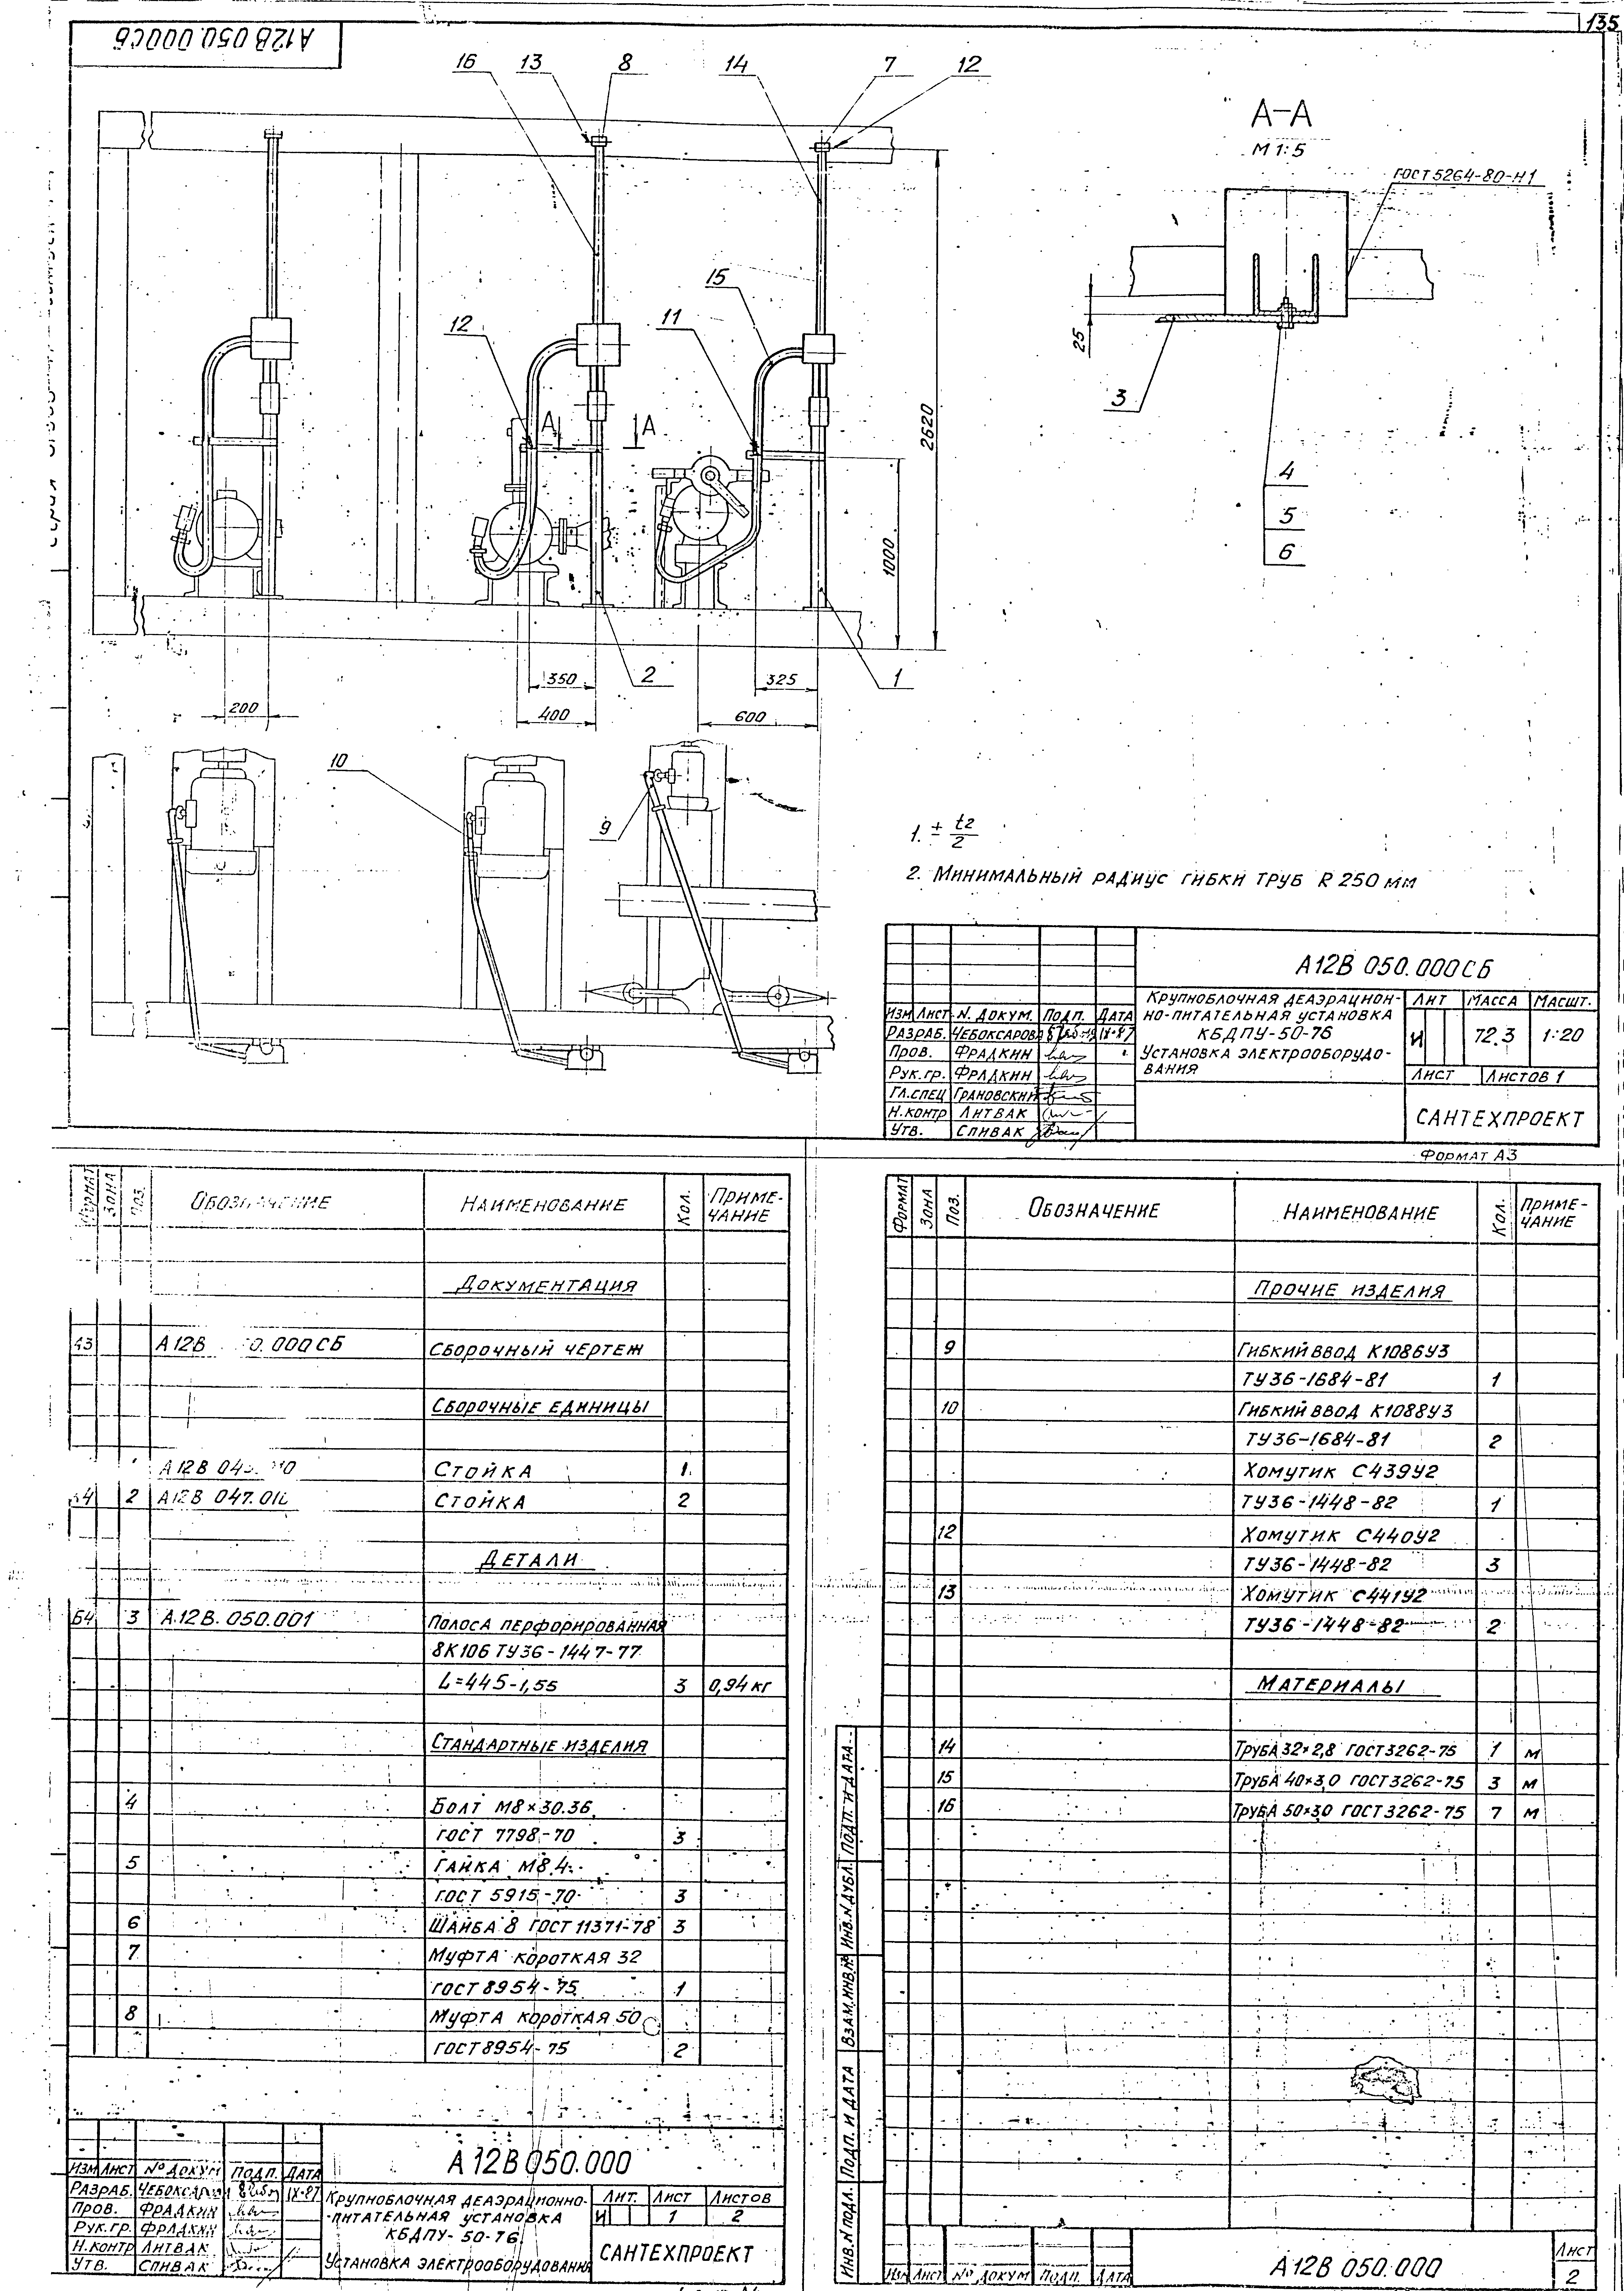 135
А12В 050.000СБ
16
13
8
14
7
12
А–А
М 1:5
ГОСТ 5264-80-Н1
15
12
11
А
А
25
3
2620
4
5
6
1000
350
2
325
1
200
400
600
10
9
1. ± t2/2
2. Минимальный радиус гибки труб R 250 мм
А12В 050.000СБ
Крупноблочная деаэрацион-
но-питательная установка
КБДПУ-50-76
Установка электрооборудо-
вания
Лит Масса Масшт.
И 72.3 1:20
Лист Листов 1
САНТЕХПРОЕКТ
Изм Лист N. докум. Подп. Дата
Разраб. Чебоксарова IX-87
Пров. Фрадкин
Рук.гр. Фрадкин
Гл.спец Грановский
Н.контр Литвак
Утв. Спивак
Формат А3
Формат Зона Поз. Обозначение Наименование Кол. Приме-
чание
Документация
А3 А12В 0.000СБ Сборочный чертеж
Сборочные единицы
Стойка 1
2 А12В 047.010 Стойка 2
Детали
Б4 3 А12В.050.001 Полоса перфорированная
8К106 ТУ36-1447-77
L=445-1,55 3 0,94 кг
Стандартные изделия
4 Болт М8×30.36
ГОСТ 7798-70 3
5 Гайка М8.4
ГОСТ 5915-70 3
6 Шайба 8 ГОСТ 11371-78 3
7 Муфта короткая 32
ГОСТ 8954-75 1
8 Муфта короткая 50
ГОСТ 8954-75 2
А12В 050.000
Изм Лист № докум Подп. Дата
Разраб. IX-87
Пров. Фрадкин
Рук.гр. Фрадкин
Н.контр Литвак
Утв. Спивак
Крупноблочная деаэрационно-
-питательная установка
КБДПУ-50-76
Установка электрооборудования
Лит. Лист Листов
И 1 2
САНТЕХПРОЕКТ
Формат Зона Поз. Обозначение Наименование Кол. Приме-
чание
Прочие изделия
9 Гибкий ввод К1086У3
ТУ36-1684-81 1
10 Гибкий ввод К1088У3
ТУ36-1684-81 2
Хомутик С439У2
ТУ36-1448-82 1
12 Хомутик С440У2
ТУ36-1448-82 3
13 Хомутик С441У2
ТУ36-1448-82 2
Материалы
14 Труба 32×2,8 ГОСТ 3262-75 1 м
15 Труба 40×3,0 ГОСТ 3262-75 3 м
16 Труба 50×3,0 ГОСТ 3262-75 7 м
Инв.N подл. Подп. и дата Взам.инв.№ Инв.N дубл. Подп. и дата
Изм Лист № докум Подп. Дата
А12В 050.000
Лист
2